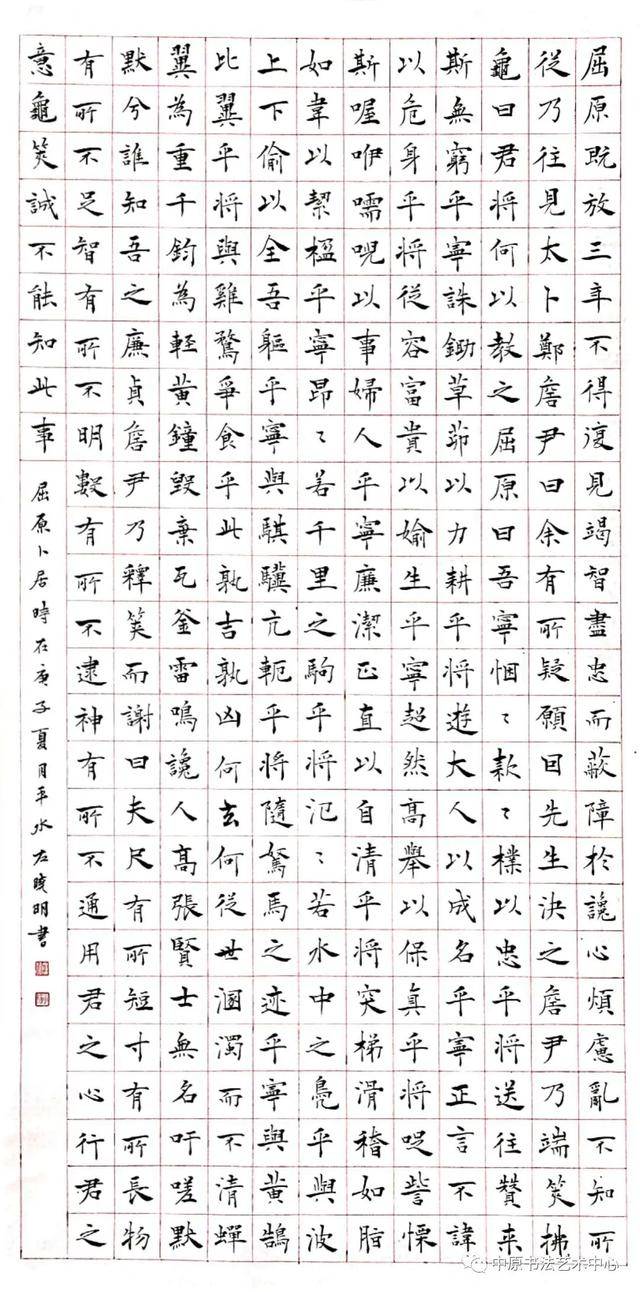 屈原既放三年不得復見竭智盡忠而蔽障於讒心煩慮亂不知所
從乃往見太卜鄭詹尹曰余有所疑願因先生決之詹尹乃端筴拂
龜曰君將何以教之屈原曰吾寧悃〻款〻樸以忠乎將送往贊来
斯無窮乎寧誅鋤草茆以力耕乎將遊大人以成名乎寧正言不諱
以危身乎將從容富貴以媮生乎寧超然高舉以保真乎將哫訾慄
斯喔咿嚅唲以事婦人乎寧廉潔正直以自清乎將突梯滑稽如脂
如韋以絜楹乎寧昂〻若千里之駒乎將氾〻若水中之鳧乎與波
上下偷以全吾軀乎寧與騏驥亢軛乎將隨駑馬之迹乎寧與黃鵠
比翼乎將與雞鶩爭食乎此孰吉孰凶何去何從世溷濁而不清蟬
翼為重千鈞為輕黃鐘毀棄瓦釜雷鳴讒人高張賢士無名吁嗟默
默兮誰知吾之廉貞詹尹乃釋筴而謝曰夫尺有所短寸有所長物
有所不足智有所不明數有所不逮神有所不通用君之心行君之
意龜筴誠不能知此事
屈原卜居時在庚子夏月平水左明書
中原书法艺术中心